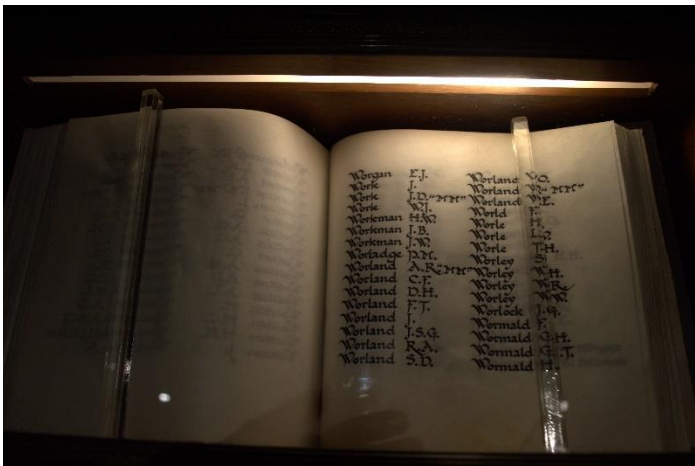 Worgan E.J.
Work J.
Work J.D. "MM"
Work W.J.
Workman H.W.
Workman J.B.
Workman J.W.
Worladge P.M.
Worland A.R. "MM"
Worland C.F.
Worland D.H.
Worland F.T.
Worland J.
Worland J.S.G.
Worland R.A.
Worland S.D.
Worland V.O.
Worland W. "MM"
Worland W.E.
World F.
Worle H.
Worle L.
Worle T.H.
Worley S.
Worley W.H.
Worley W.R.
Worley W.W.
Worlock J.G.
Wormald F.
Wormald G.H.
Wormald G. T.
Wormald H.